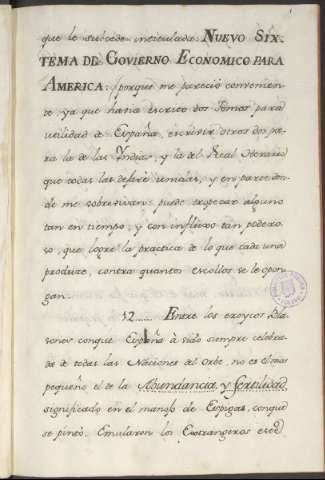 que le subcede intitulada: NUEVO SIX-
TEMA DE GOVIERNO ECONOMICO PARA
AMERICA: porque me pareció convenien-
te, ya que havia escrito dos Tomos para
utilidad de España, escrivir otros dos pa-
ra la de las Yndias, y la del Real Herario
que todas las deseo unidas, y en parte don-
de me sobrevivan: puede tropezar alguno
tan en tiempo, y con influxo tan podero-
so, que logre la practica de lo que cada una
produce, contra quantos escollos se le opon-
gan.
12...... Entre los eroycos Bla-
sones conque España à sido siempre celebra-
da de todas las Naciones del Orbe, no es el mas
pequeño el de la Abundancia, y fertilidad
significado en el manojo de Espigas, conque
se pintó. Emularon los Extrangeros este